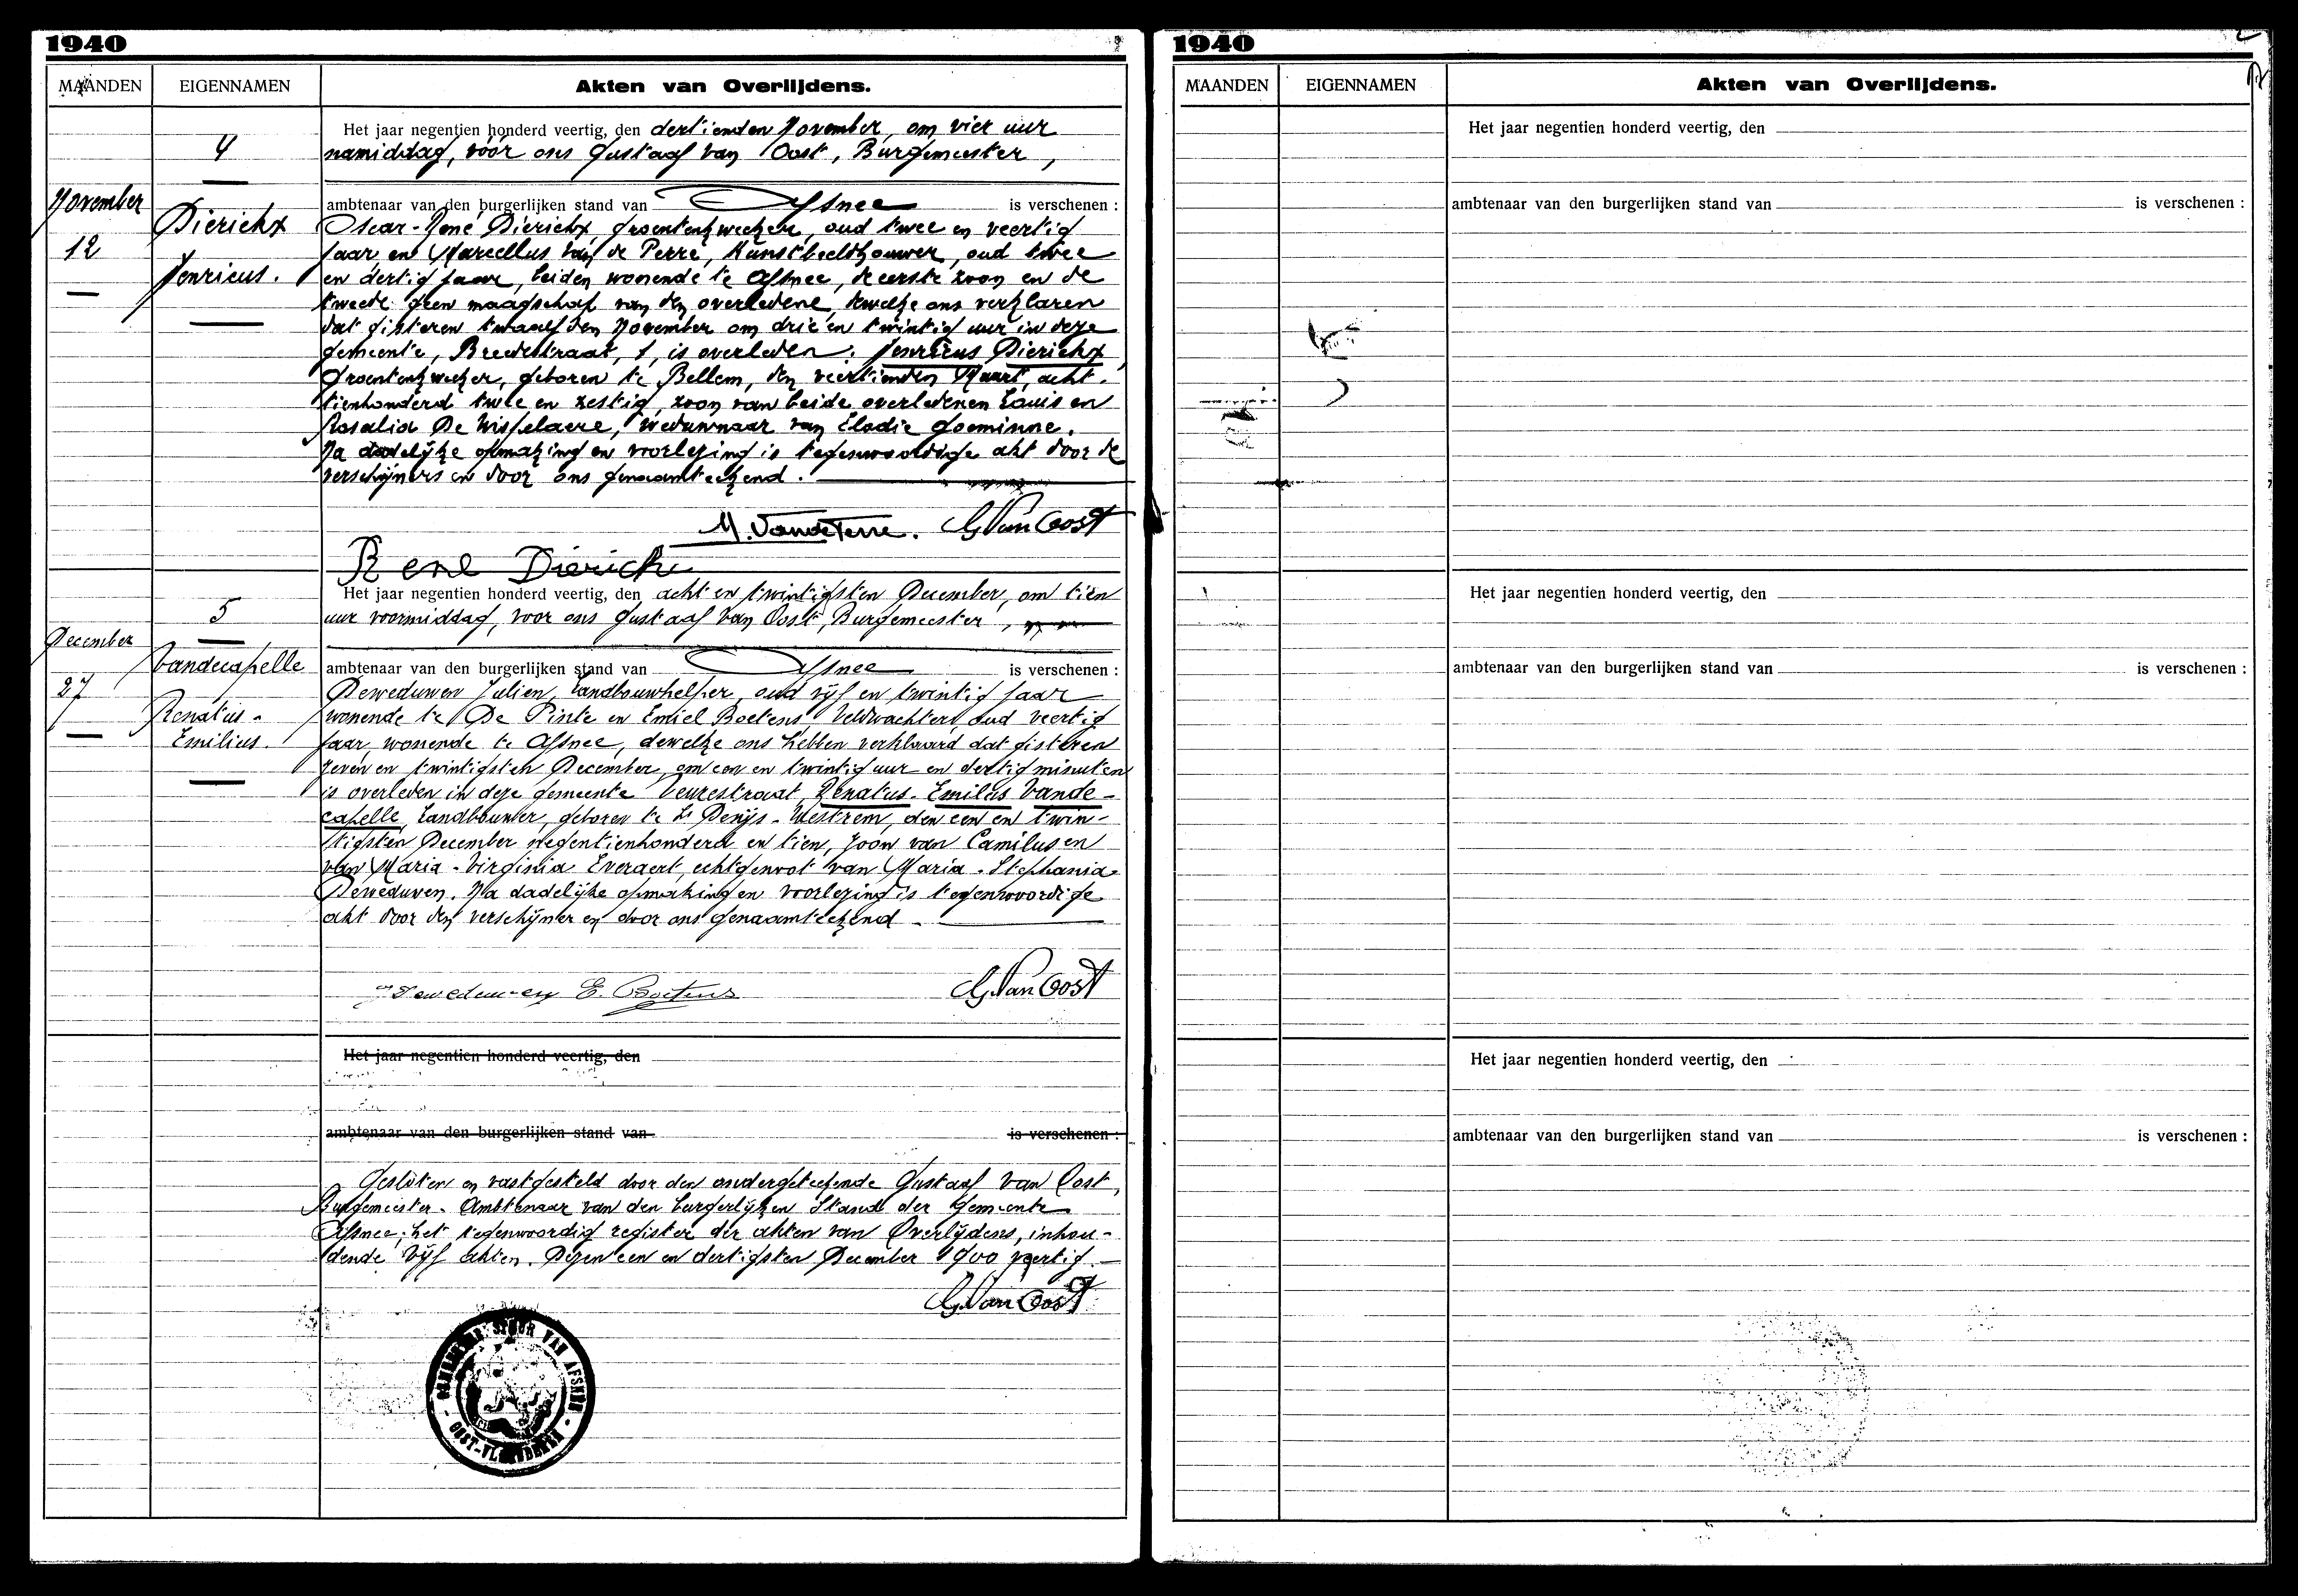 1940
MAANDEN EIGENNAMEN Akten van Overlijdens.
4
November
12
Dierickx
Henricus.
Het jaar negentien honderd veertig, den dertienden November, om vier uur
namiddag, voor ons Gustaaf Van Oost, Burgemeester,
ambtenaar van den burgerlijken stand van Afsnee is verschenen :
Oscar-René Dierickx, groentenkweeker, oud twee en veertig
jaar en Marcellus Van de Perre, Kunstbeeldhouwer, oud twee
en dertig jaar, beiden wonende te Afsnee, de eerste zoon en de
tweede geen maagschap van den overledene, dewelke ons verklaren
dat gisteren twaalfden November om drie en twintig uur in deze
gemeente, Breedestraat, 1, is overleden: Henricus Dierickx,
Groentenkweeker, geboren te Bellem, den veertienden Maart, acht-
tienhonderd twee en zestig, zoon van beide overledenen Louis en
Rosalia De Wispelaere, weduwnaar van Elodie Goeminne.
Na dadelijke opmaking en voorlezing is tegenwoordige akt door de
verschijners en door ons genaamteekend.
M. Vandeperre. G. Van Oost
René Dierickx
5
December
27
Vandecapelle
Renatus-
Emilius.
Het jaar negentien honderd veertig, den acht en twintigsten December, om tien
uur voormiddag, voor ons Gustaaf Van Oost, Burgemeester,
ambtenaar van den burgerlijken stand van Afsnee is verschenen :
Deweduwen Julien, Landbouwhelper, oud vijf en twintig jaar
wonende te De Pinte en Emiel Boetens, Veldwachter, oud veertig
jaar wonende te Afsnee, dewelke ons hebben verklaard dat gisteren
zeven en twintigsten December, om een en twintig uur en dertig minuten
is overleden in deze gemeente Veurestraat, Renatus-Emilius Vande-
capelle, Landbouwer, geboren te St Denijs-Westrem, den een en twin-
tigsten December negentienhonderd en tien, zoon van Camilus en
van Maria-Virginia Everaert, echtgenoot van Maria-Stephania
Deweduwen. Na dadelijke opmaking en voorlezing is tegenwoordige
akt door den verschijner en door ons genaamteekend
Deweduwen E. Boetens G. Van Oost
Het jaar negentien honderd veertig, den
ambtenaar van den burgerlijken stand van is verschenen :
Gesloten en vastgesteld door den ondergeteekende Gustaaf Van Oost,
Burgemeester-Ambtenaar van den burgerlijken Stand der Gemeente
Afsnee; het tegenwoordig register der akten van Overlijdens, inhou-
dende vijf akten. Dezen een en dertigsten December 1900 veertig.
G. Van Oost
GEMEENTEBESTUUR VAN AFSNEE
OOST-VLAANDEREN
1940
MAANDEN EIGENNAMEN Akten van Overlijdens.
Het jaar negentien honderd veertig, den
ambtenaar van den burgerlijken stand van is verschenen :
Het jaar negentien honderd veertig, den
ambtenaar van den burgerlijken stand van is verschenen :
Het jaar negentien honderd veertig, den
ambtenaar van den burgerlijken stand van is verschenen :